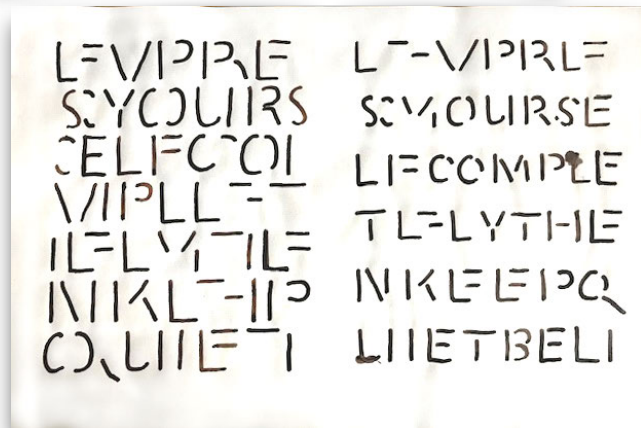 EXPRE
SSYOURS
ELFCO
MPLET
ELYTHE
NKEEP
QUIET
EXPRE
SSYOURSE
LFCOMPLE
TELYTHE
NKEEPQ
UIETBELI